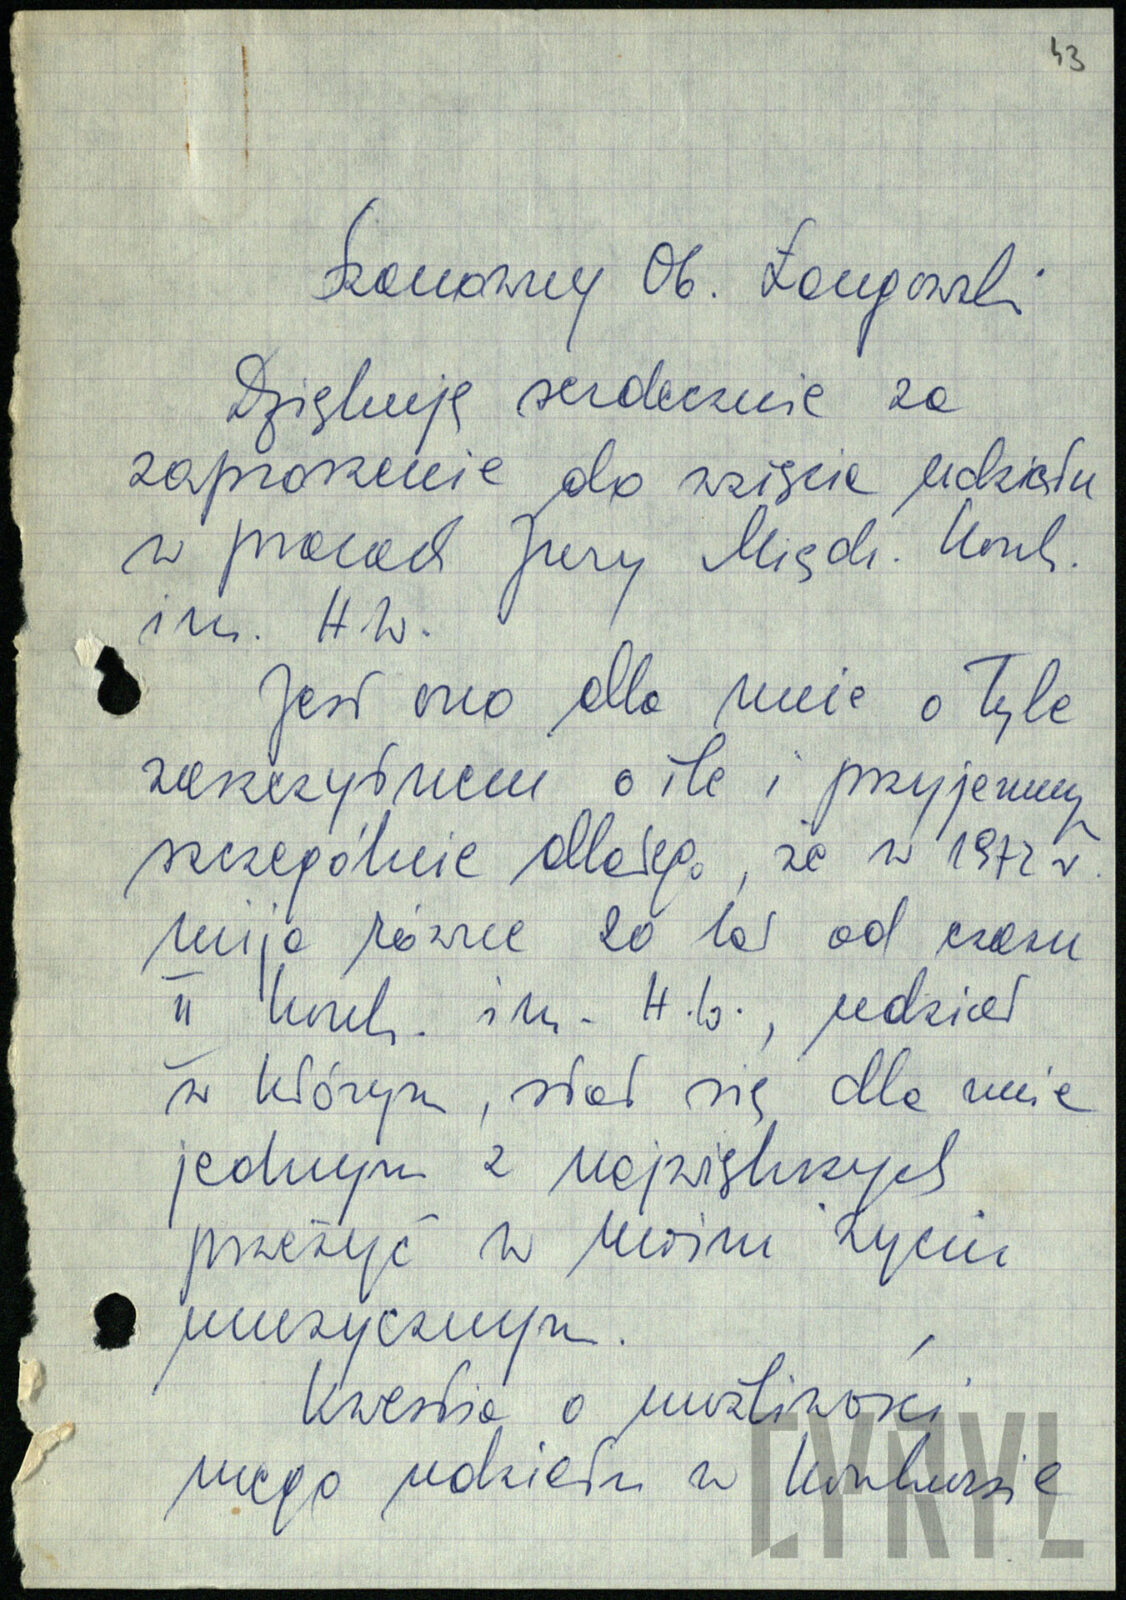 43
Szanowny Ob. Łangowski
Dziękuję serdecznie za
zaproszenie do wzięcie udziału
w pracach Jury Międz. Konk.
im. H W.
Jest ono dla mnie o tyle
zaszczytnem o ile i przyjemny
szczególnie dlatego, że w 1972 r.
mija równe 20 lat od czasu
II Konk. im. H.W., udział
w którym, stał się dla mnie
jednym z największych
przeżyć w moim życiu
muzycznym.
Kwestia o możliwości
mego udziału w Konkursie
CYRYL